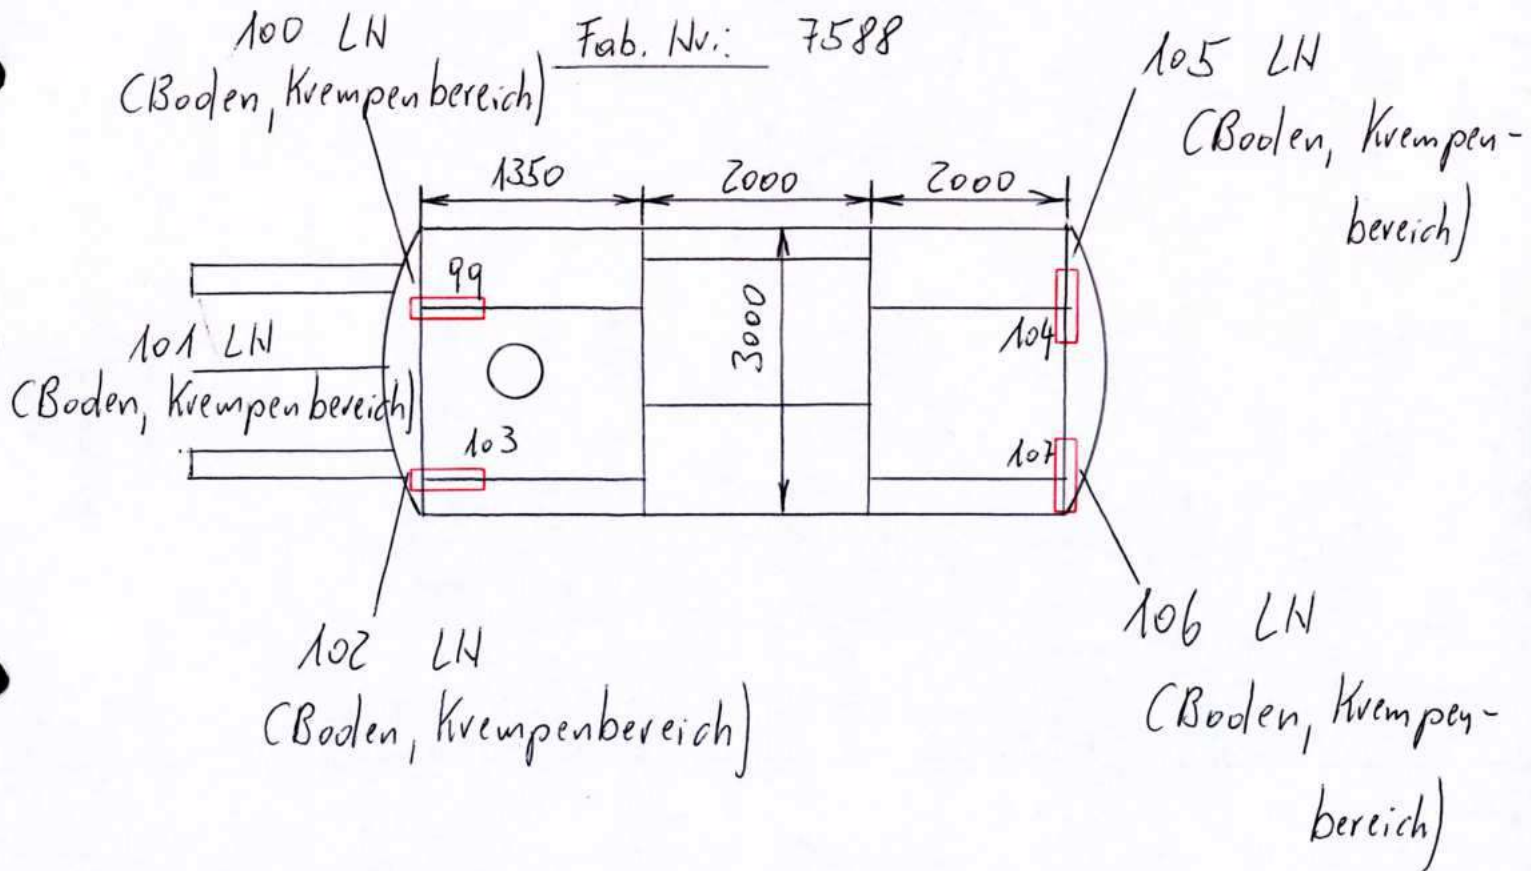 100 LN
(Boden, Krempenbereich)
Fab. Nr.: 7588
105 LN
(Boden, Krempen-
bereich)
1350
2000
2000
99
3000
104
101 LN
(Boden, Krempenbereich)
103
107
102 LN
(Boden, Krempenbereich)
106 LN
(Boden, Krempen-
bereich)